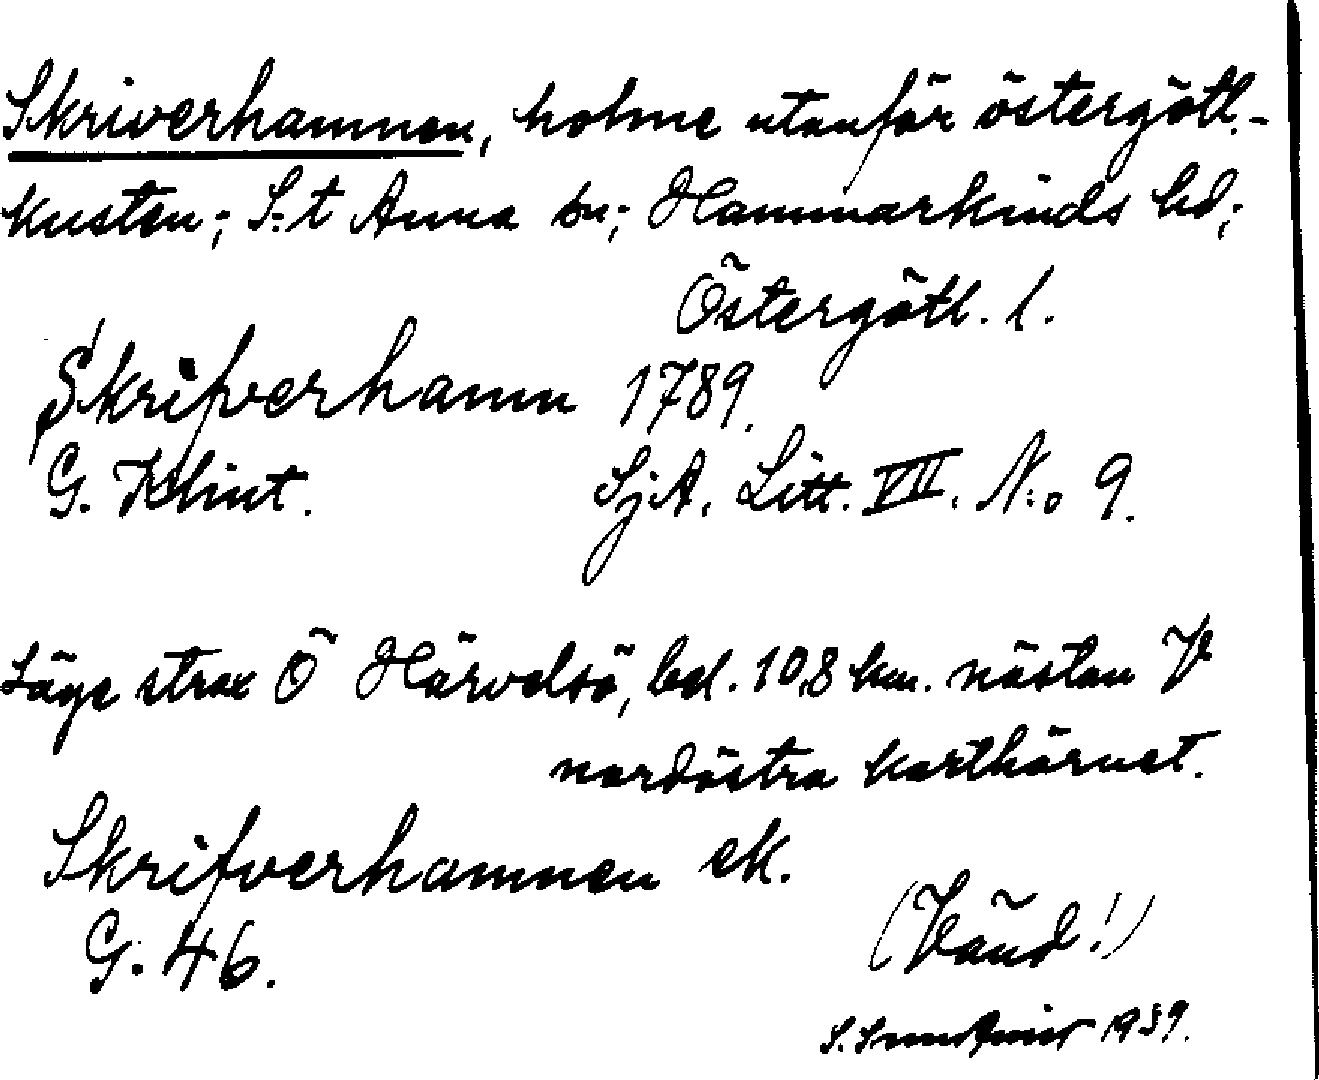 Skriverhamnen, holme utanför östergötl.-
kusten; S:t Anna sn; Hammarkinds hd;
Östergötl. l.
Skrifverhamn 1789.
G. Klint. SjA. Litt. VII. N:o 9.
Läge strax Ö Härvelsö, bel. 10,8 km. nästan V
nordöstra karthörnet.
Skrifverhamnen ek.
G. 46.
(Vänd!)
S. 1939.